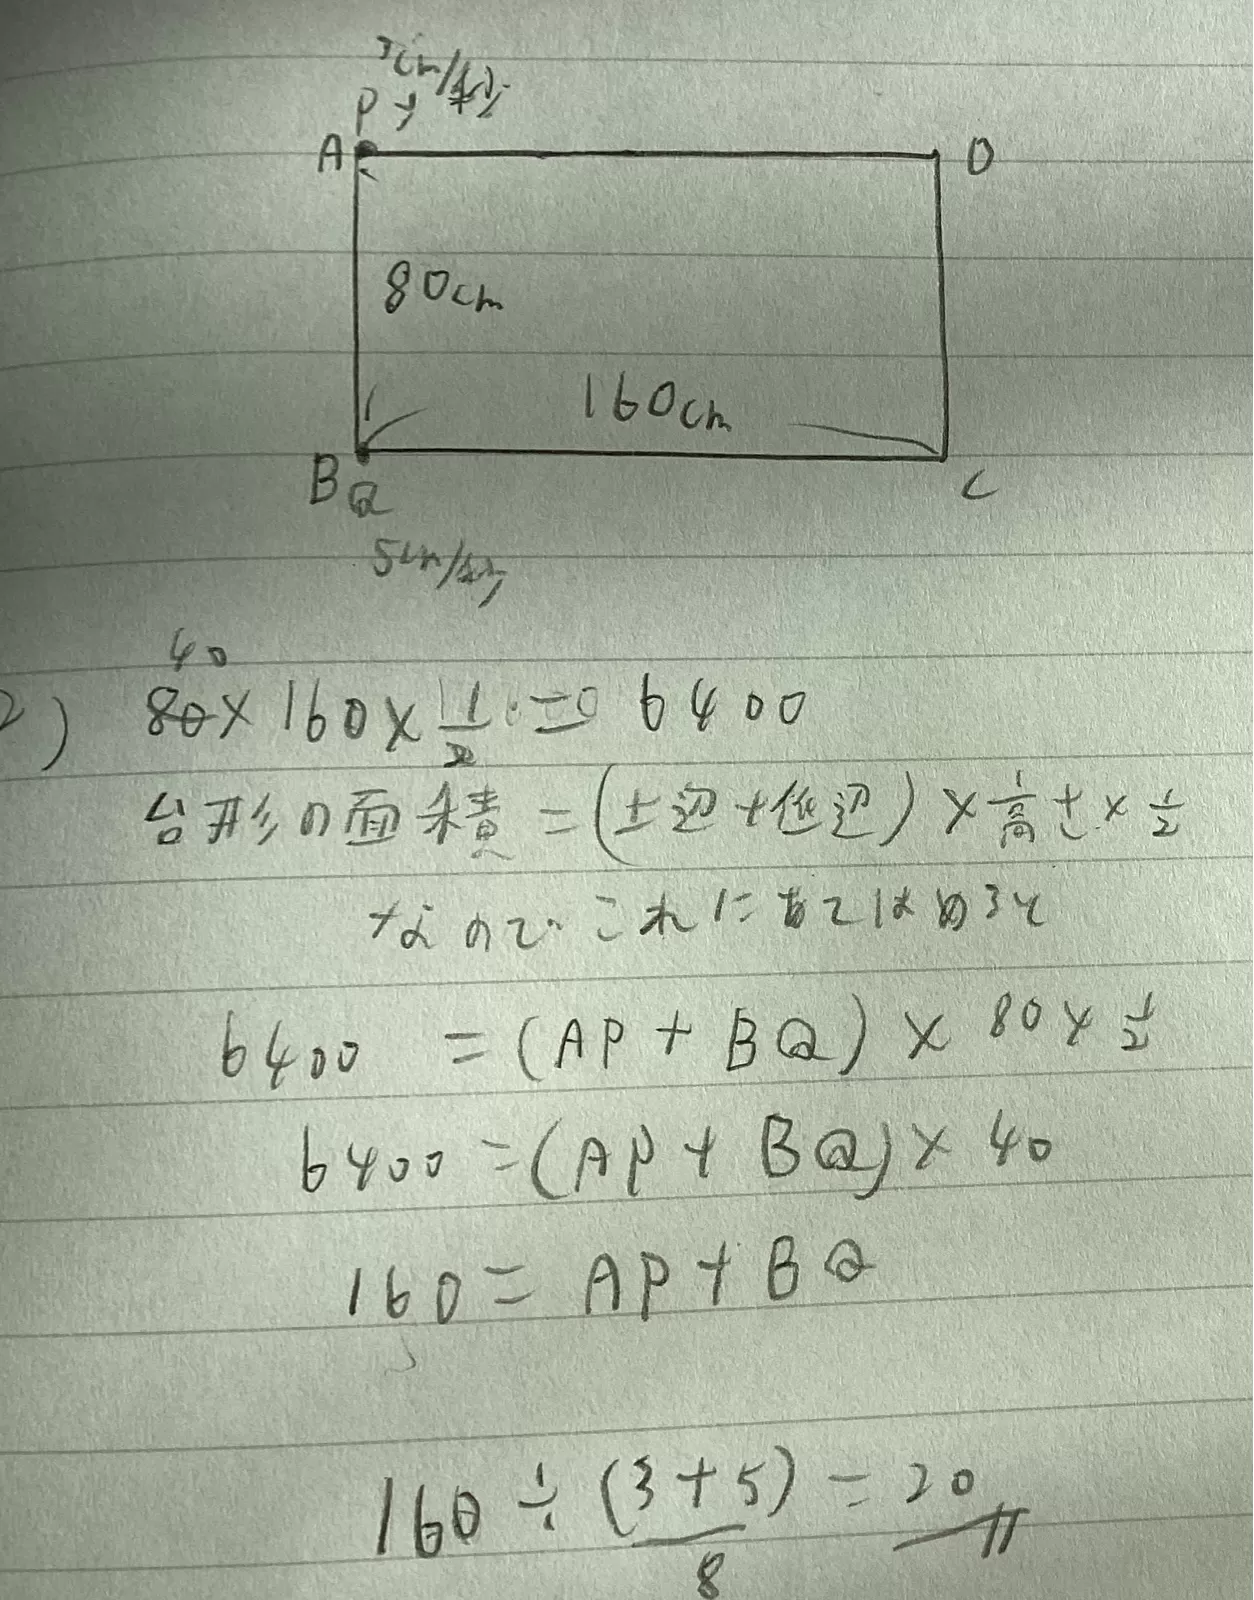 3cm/秒
P→
A
D
80cm
160cm
B Q
C
5cm/秒
40
2) 80×160×1/2=6400
台形の面積=(上辺+底辺)×高さ×1/2
なので、これにあてはめると
6400 =(AP+BQ)×80×1/2
6400=(AP+BQ)×40
160=AP+BQ
160÷(3+5)=20
8